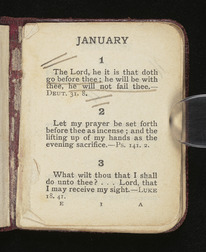 JANUARY
1
The Lord, he it is that doth
go before thee; he will be with
thee, he will not fail thee.—
DEUT. 31. 8.
2
Let my prayer be set forth
before thee as incense; and the
lifting up of my hands as the
evening sacrifice.—Ps. 141. 2.
3
What wilt thou that I shall
do unto thee? . . . Lord, that
I may receive my sight.—LUKE
18. 41.
E I A